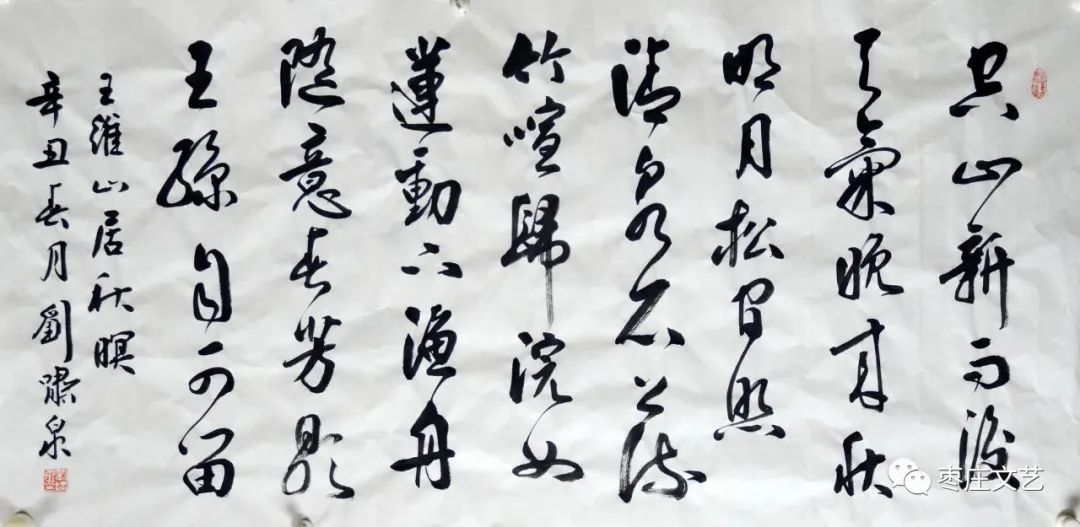 空山新雨後
天氣晚来秋
明月松间照
清泉石上流
竹喧歸浣女
蓮動下漁舟
随意春芳歇
王孫自可留
王維山居秋暝
辛丑春月劉嘯泉
枣庄文艺